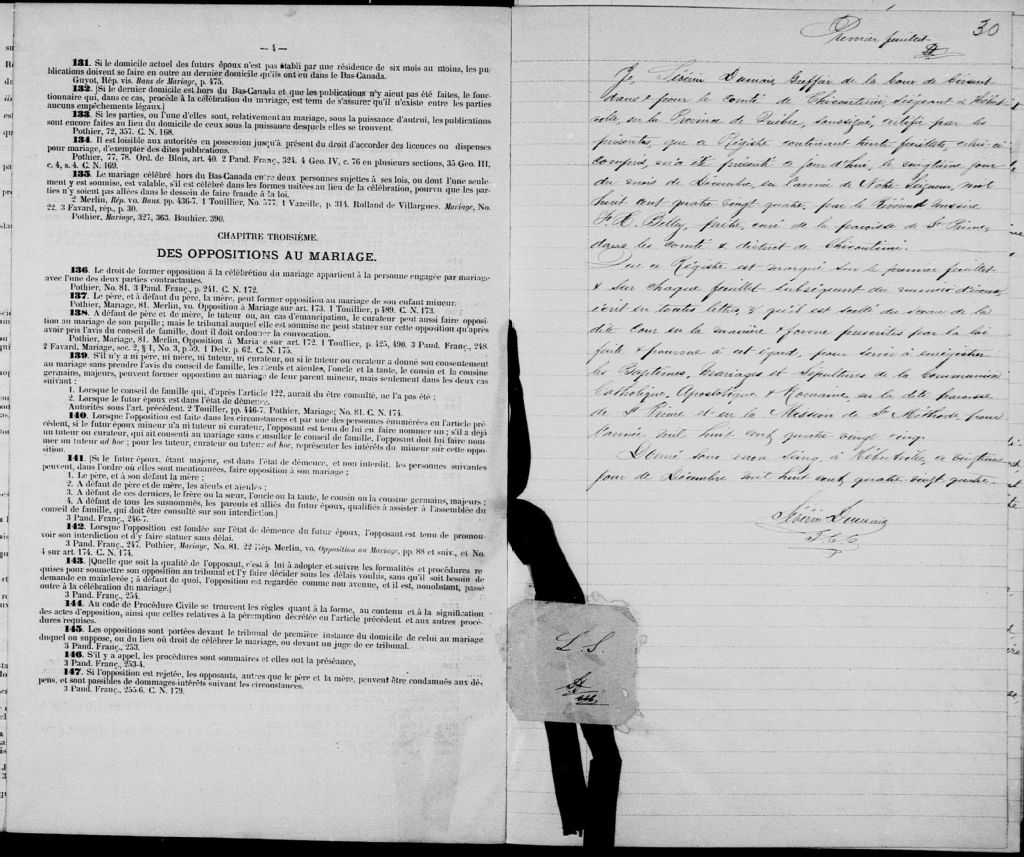 — 4 —
131. Si le domicile actuel des futurs époux n'est pas établi par une résidence de six mois au moins, les pu-
blications doivent se faire en outre au dernier domicile qu'ils ont eu dans le Bas-Canada.
Guyot, Rép. vis. Bans de Mariage, p. 475.
132. [Si le dernier domicile est hors du Bas-Canada et que les publications n'y aient pas été faites, le fonc-
tionnaire qui, dans ce cas, procède à la célébration du mariage, est tenu de s'assurer qu'il n'existe entre les parties
aucuns empêchements légaux.]
133. Si les parties, ou l'une d'elles sont, relativement au mariage, sous la puissance d'autrui, les publications
sont encore faites au lieu du domicile de ceux sous la puissance desquels elles se trouvent.
Pothier, 72, 357. C. N. 168.
134. Il est loisible aux autorités en possession jusqu'à présent du droit d'accorder des licences ou dispenses
pour mariage, d'exempter des dites publications.
Pothier, 77, 78. Ord. de Blois, art. 40. 2 Pand. Franç., 324. 4 Geo. IV, c. 76 en plusieurs sections, 35 Geo. III,
c. 4, s. 4. C. N. 169.
135. Le mariage célébré hors du Bas-Canada entre deux personnes sujettes à ses lois, ou dont l'une seule-
ment y est soumise, est valable, s'il est célébré dans les formes usitées au lieu de la célébration, pourvu que les par-
ties n'y soient pas allées dans le dessein de faire fraude à la loi.
2 Merlin, Rép. vo. Bans. pp. 436-7. 1 Touillier, No. 577. 1 Vazeille, p. 314. Rolland de Villargues. Mariage, No.
22. 3 Favard, rép., p. 30.
Pothier, Mariage, 327, 363. Bouhier, 390.
CHAPITRE TROISIÈME.
DES OPPOSITIONS AU MARIAGE.
136. Le droit de former opposition à la célébrétion du mariage appartient à la personne engagée par mariage
avec l'une des deux parties contractantes.
Pothier, No. 81. 3 Pand. Franç., p. 241. C. N. 172.
137. Le père, et à défaut du père, la mère, peut former opposition au mariage de son enfant mineur.
Pothier, Mariage, 81. Merlin, vo. Opposition à Mariage sur art. 173. 1 Touillier, p. 489. C. N. 173.
138. A défaut de père et de mère, le tuteur ou, au cas d'émancipation, le curateur peut aussi faire opposi-
tion au mariage de son pupille; mais le tribunal auquel elle est soumise ne peut statuer sur cette opposition qu'après
avoir pris l'avis du conseil de famille, dont il doit ordonner la convocation.
Pothier, Mariage, 81. Merlin, Opposition à Mariage sur art. 172. 1 Toullier, p. 425, 490. 3 Pand. Franç., 248.
2 Favard, Mariage, sec. 2, § 1, No. 3, p. 59. 1 Delv. p. 62. C. N. 175.
139. S'il n'y a ni père, ni mère, ni tuteur, ni curateur, ou si le tuteur ou curateur a donné son consentement
au mariage sans prendre l'avis du conseil de famille, les aïeuls et aïeules, l'oncle et la tante, le cousin et la cousine
germains, majeurs, peuvent former opposition au mariage de leur parent mineur, mais seulement dans les deux cas
suivant :
1. Lorsque le conseil de famille qui, d'après l'article 122, aurait du être consulté, ne l'a pas été ;
2. Lorsque le futur époux est dans l'état de démence.
Autorités sous l'art. précédent. 2 Touiller, pp. 446-7. Pothier, Mariage; No. 81. C. N. 174.
140. Lorsque l'opposition est faite dans les circonstances et par une des personnes énumérées en l'article pré-
cédent, si le futur époux mineur n'a ni tuteur ni curateur, l'opposant est tenu de lui en faire nommer un ; s'il a déjà
un tuteur ou curateur, qui ait consenti au mariage sans consulter le conseil de famille, l'opposant doit lui faire nom-
mer un tuteur ad hoc ; pour les tuteur, curateur ou tuteur ad hoc, représenter les intérêts du mineur sur cette oppo-
sition.
141. [Si le futur époux, étant majeur, est dans l'état de démence, et non interdit, les personnes suivantes
peuvent, dans l'ordre où elles sont mentionnées, faire opposition à son mariage ;
1. Le père, et à son défaut la mère ;
2. A défaut de père et de mère, les aïeuls et aïeules ;
3. A défaut de ces derniers, le frère ou la sœur, l'oncle ou la tante, le cousin ou la cousine germains, majeurs ;
4. A défaut de tous les susnommés, les parents et alliés du futur époux, qualifiés à assister à l'assemblée du
conseil de famille, qui doit être consulté sur son interdiction.]
3 Pand. Franç., 246-7.
142. Lorsque l'opposition est fondée sur l'état de démence du futur époux, l'opposant est tenu de promou-
voir son interdiction et d'y faire statuer sans délai.
3 Pand. Franç., 247. Pothier, Mariage, No. 81. 22 Rép. Merlin, vo. Opposition au Mariage, pp. 88 et suiv., et No.
4 sur art. 174. C. N. 174.
143. [Quelle que soit la qualité de l'opposant, c'est à lui à adopter et suivre les formalités et procédures re
quises pour soumettre son opposition au tribunal et l'y faire décider sous les délais voulus, sans qu'il soit besoin de
demande en mainlevée ; à défaut de quoi, l'opposition est regardée comme non avenue, et il est, nonobstant, passé
outre à la célébration du mariage.]
3 Pand. Franç., 254.
144. Au code de Procédure Civile se trouvent les règles quant à la forme, au contenu et à la signification
des actes d'opposition, ainsi que celles relatives à la péremption décrétée en l'article précédent et aux autres procé-
dures requises.
145. Les oppositions sont portées devant le tribunal de première instance du domicile de celui au mariage
duquel on suppose, ou du lieu où droit de célébrer le mariage, ou devant un juge de ce tribunal.
3 Pand. Franç., 253.
146. S'il y a appel, les procédures sont sommaires et elles ont la préséance,
3 Pand. Franç., 253-4.
147. Si l'opposition est rejetée, les opposants, autres que le père et la mère, peuvent être condamnés aux dé-
pens, et sont passibles de dommages-intérêts suivant les circonstances.
3 Pand. Franç., 255-6. C. N. 179.
30
Premier feuillet
Je, Séverin Dumais, Greffier de la Cour de Circuit
dans & pour le comté de Chicoutimi, siégeant à Hébert
ville, en la Province de Québec, soussigné, certifie par les
présentes, que ce Régistre contenant trente feuillets, celui-ci
compris, m'a été présenté ce jour d'hui, le vingtième jour
du mois de Décembre, en l'année de Notre Seigneur, mil
huit cent quatre vingt quatre, par le Révérend messire
F. X. Belley, prêtre, curé de la paroisse de St Prime,
dans les comté & district de Chicoutimi.
Que ce Régistre est marqué sur le premier feuillet
& sur chaque feuillet subséquent du numéro d'icelui,
écrit en toutes lettres, & qu'il est scellé du sceau de la
dite Cour en la manière & forme prescrites par la loi
faite & pourvue à cet égard, pour servir à enregistrer
les Baptêmes, Mariages et Sépultures de la Communion
Catholique, Apostolique & Romaine, en la dite paroisse
de St Prime et en la Mission de St Méthode, pour
l'année mil huit cent quatre vingt cinq.
Donné sous mon seing, à Hébertville, ce vingtième
jour de Décembre mil huit cent quatre vingt quatre.
Séverin Dumais
G. C. C.
L. S.